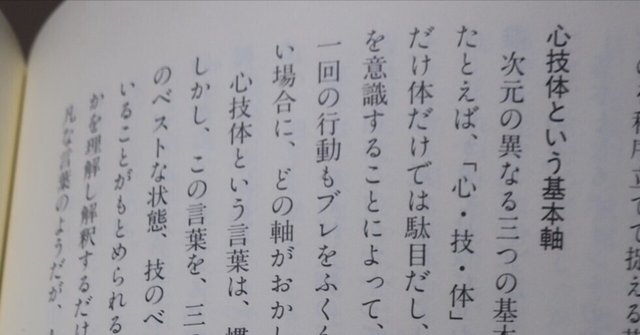 て捉える
心技体という基本軸
次元の異なる三つの基
たとえば、「心・技・体」
だけ体だけでは駄目だし、
を意識することによって、
一回の行動もブレをふくん
い場合に、どの軸がおかし
心技体という言葉は、
しかし、この言葉を、三
のベストな状態、技のベ
いることがもとめられる
かを理解し解釈するだけ
凡な言葉のようだが、